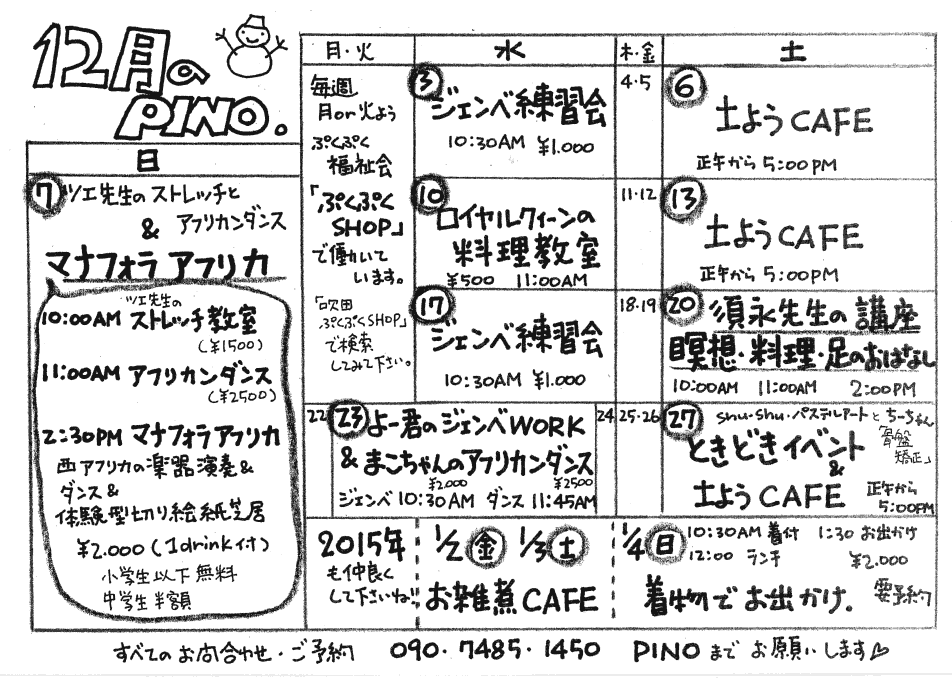 12月の
PINO.
日
7 ツエ先生のストレッチと
& アフリカンダンス
マナフォラ アフリカ
ツエ先生の
10:00AM ストレッチ教室
(¥1500)
11:00AM アフリカンダンス
(¥2500)
2:30PM マナフォラアフリカ
西アフリカの楽器演奏&
ダンス&
体験型切り絵紙芝居
¥2.000 (1drink付)
小学生以下無料
中学生半額
月・火
毎週
月or火よう
ぷくぷく
福祉会
「ぷくぷく
SHOP」
で働いて
います。
「吹田
ぷくぷくSHOP」
で検索
してみて下さい。
水
3 ジェンベ練習会
10:30AM ¥1.000
10 ロイヤルクィーンの
料理教室
¥500 11:00AM
17 ジェンベ練習会
10:30AM ¥1.000
木・金
4・5
11・12
18・19
土
6 土ようCAFE
正午から5:00PM
13 土ようCAFE
正午から5:00PM
20 須永先生の講座
瞑想・料理・足のおはなし
10:00AM 11:00AM 2:00PM
22 23 よー君のジェンベWORK
& まこちゃんのアフリカンダンス
¥2.000 ¥2500
ジェンベ10:30AM ダンス11:45AM
24 25・26
27 shu・shu・パステルアートとちーちゃん
ときどきイベント 「骨盤
矯正」
&
土ようCAFE 正午から
5:00PM
2015年
も仲良く
して下さいね!!
1/2 金 1/3 土
お雑煮CAFE
1/4 日 10:30AM 着付 1:30 お出かけ
12:00 ランチ ¥2.000
着物でお出かけ。 要予約
すべてのお問合わせ・ご予約 090・7485・1450 PINOまでお願いします♡